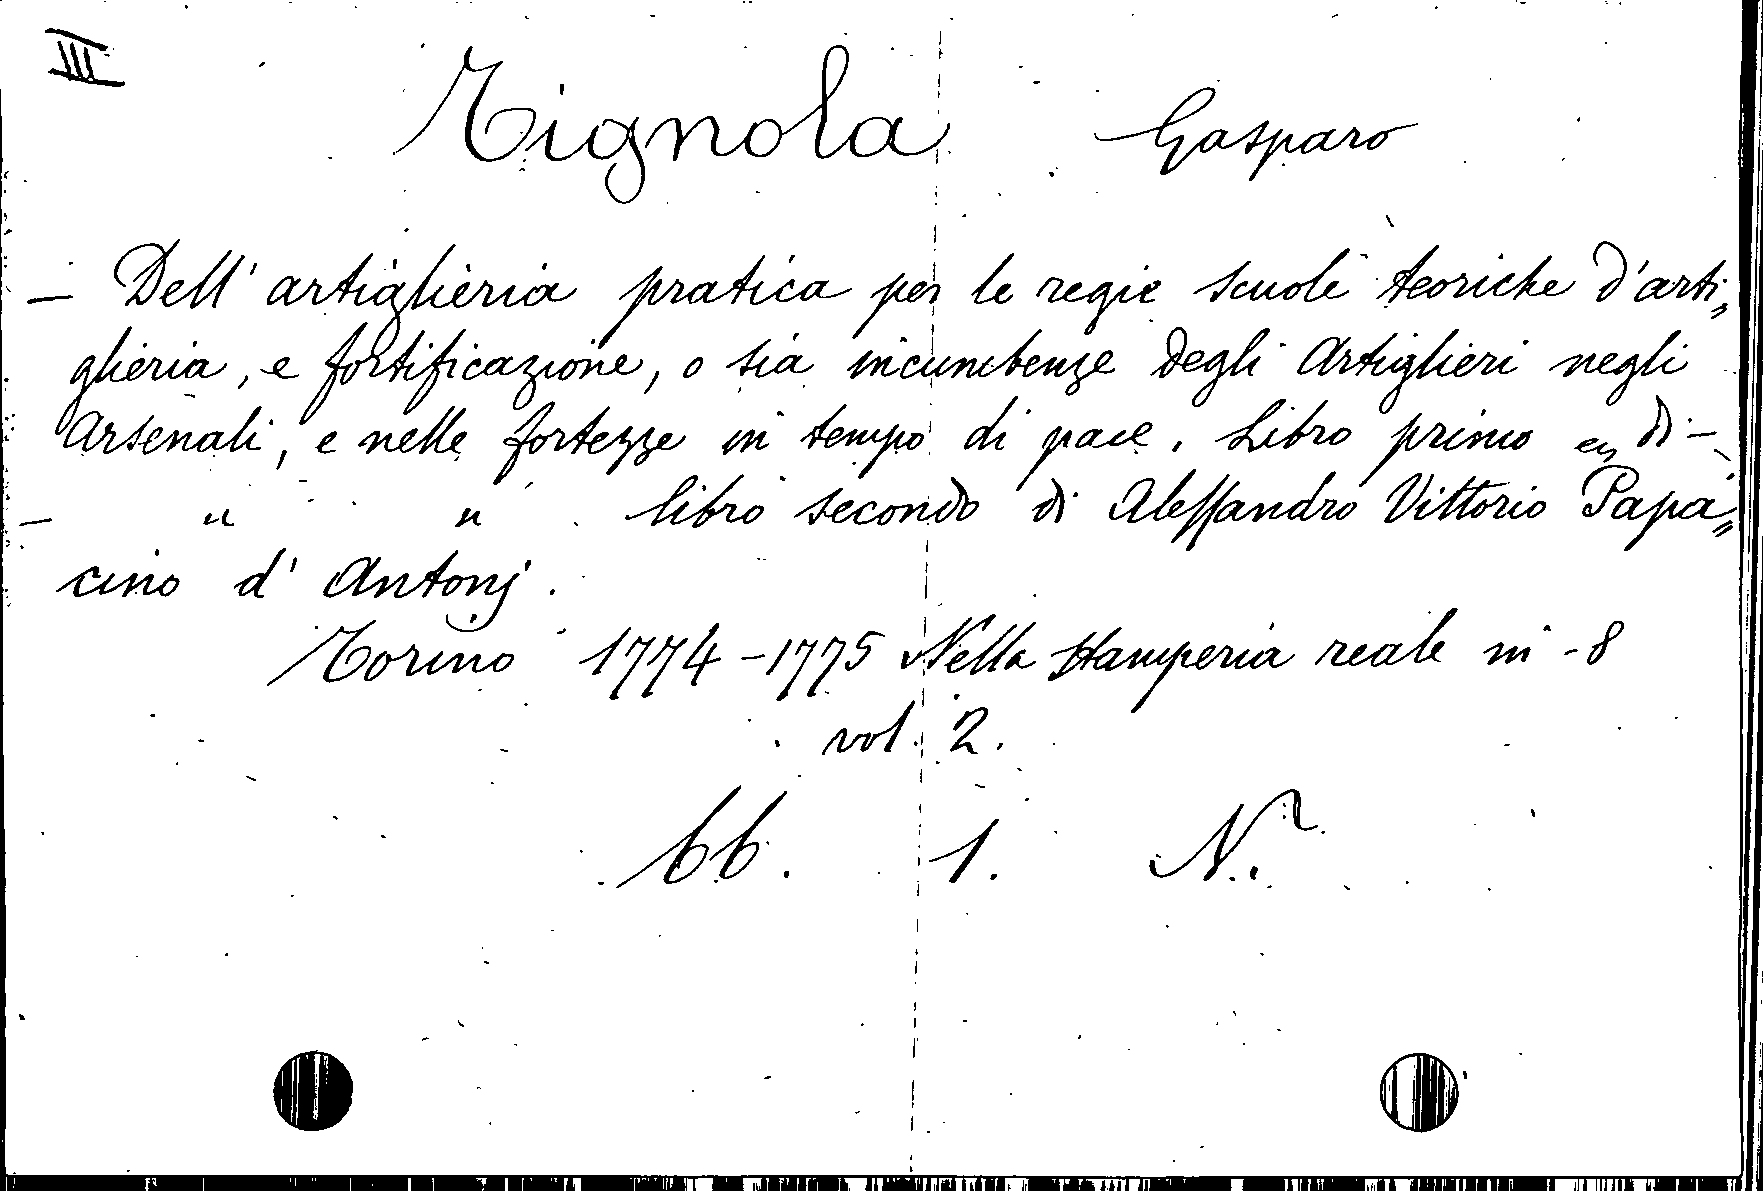 III
Tignola Gasparo
— Dell' artiglieria pratica per le regie scuole teoriche d'arti„
glieria, e fortificazione, o sia incumbenze degli Artiglieri negli
Arsenali, e nelle fortezze in tempo di pace. Libro primo di —
— " " libro secondo di Alessandro Vittorio Papa„
cino d' Antonj.
Torino 1774-1775 Nella Stamperia reale in-8
vol. 2.
bb. 1. N.